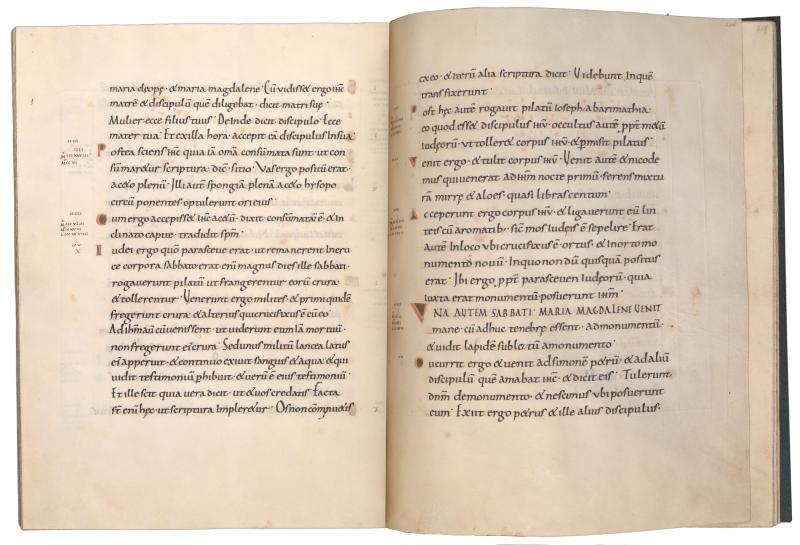 maria cleopę · & maria magdalene · Cū vidiss& ergo ihc
matrē & discipulū quē diligebat · dicit matri suę
Mulier · ecce filius tuus · Deinde dicit discipulo · Ecce
mater tua · Et ex illa hora · accepit eā discipulus in sua
Postea sciens ihc quia iā omā consūmata sunt · ut con
sūmar&ur scriptura · dic̄ · sitio · Vas ergo positū erat
ac&o plenū · Illi autē spongiā plenā ac&o hysopo
circū ponentes optulerunt ori eius ·
Cum ergo accepiss& ihc ac&ū · dixit consūmatū ē · & in
clinato capite · tradidit spm̄ ·
Iudei ergo quō parasceve erat · ut remanerent in cru
ce corpora sabbato erat enī magnus dies ille sabbati ·
rogaverunt pilatū ut frangerentur eorū crura ·
& tollerentur · Venerunt ergo milites · & primi quidē
fregerunt crura · & alterius qui crucifixus ē cū eo ·
Ad ihm̄ aū cū venissent · ut viderunt eum iā mortuū ·
non fregerunt ei crura · Sed unus militū lancea latus
ei aperuit · & continuo exivit sanguis & aqua · & qui
vidit testimoniū phibuit · & verū ē eius testimoniū
Et ille scit quia vera dicit · ut & vos credatis · Facta
st̄ enī hęc · ut scriptura implere&ur · Os non cōminu&is
ex eo · & iterū alia scriptura dicit · Videbunt in quē
transfixerunt ·
Post hęc autē rogavit pilatū ioseph ab arimathia
eo quod ess& discipulus ihū · occultus autē ppt̄ m&ū
iudęorū · ut toller& corpus ihū · & pmisit pilatus
Venit ergo · & tulit corpus ihū · Venit autē & nicode
mus qui venerat ad ihm̄ nocte primū · ferens mixtu
rā mirrę & aloes · quasi libras centum ·
Acceperunt ergo corpus ihū · & ligaverunt eū lin
teis cū aromatib; · sic̄ mos iudęis ē sepelire · Erat
autē in loco ubi crucifixus ē · ortus · & in orto mo
numentū novū · In quo non dū quisquā positus
erat · Ibi ergo ppt̄ parasceven iudęorū · quia
iuxta erat monumentū posuerunt ihm̄ ·
VNA AUTEM SABBATI · MARIA MAGDALENE VENIT
mane · cū adhuc tenebrę essent · ad monumentū ·
& vidit lapidē sublatū a monumento ·
Cucurrit ergo & venit ad simonē p&rū · & ad aliū
discipulū quē amabat ihc · & dicit eis · Tulerunt
dnm̄ de monumento · & nescimus ubi posuerunt
eum · Exiit ergo p&rus & ille alius discipulus ;